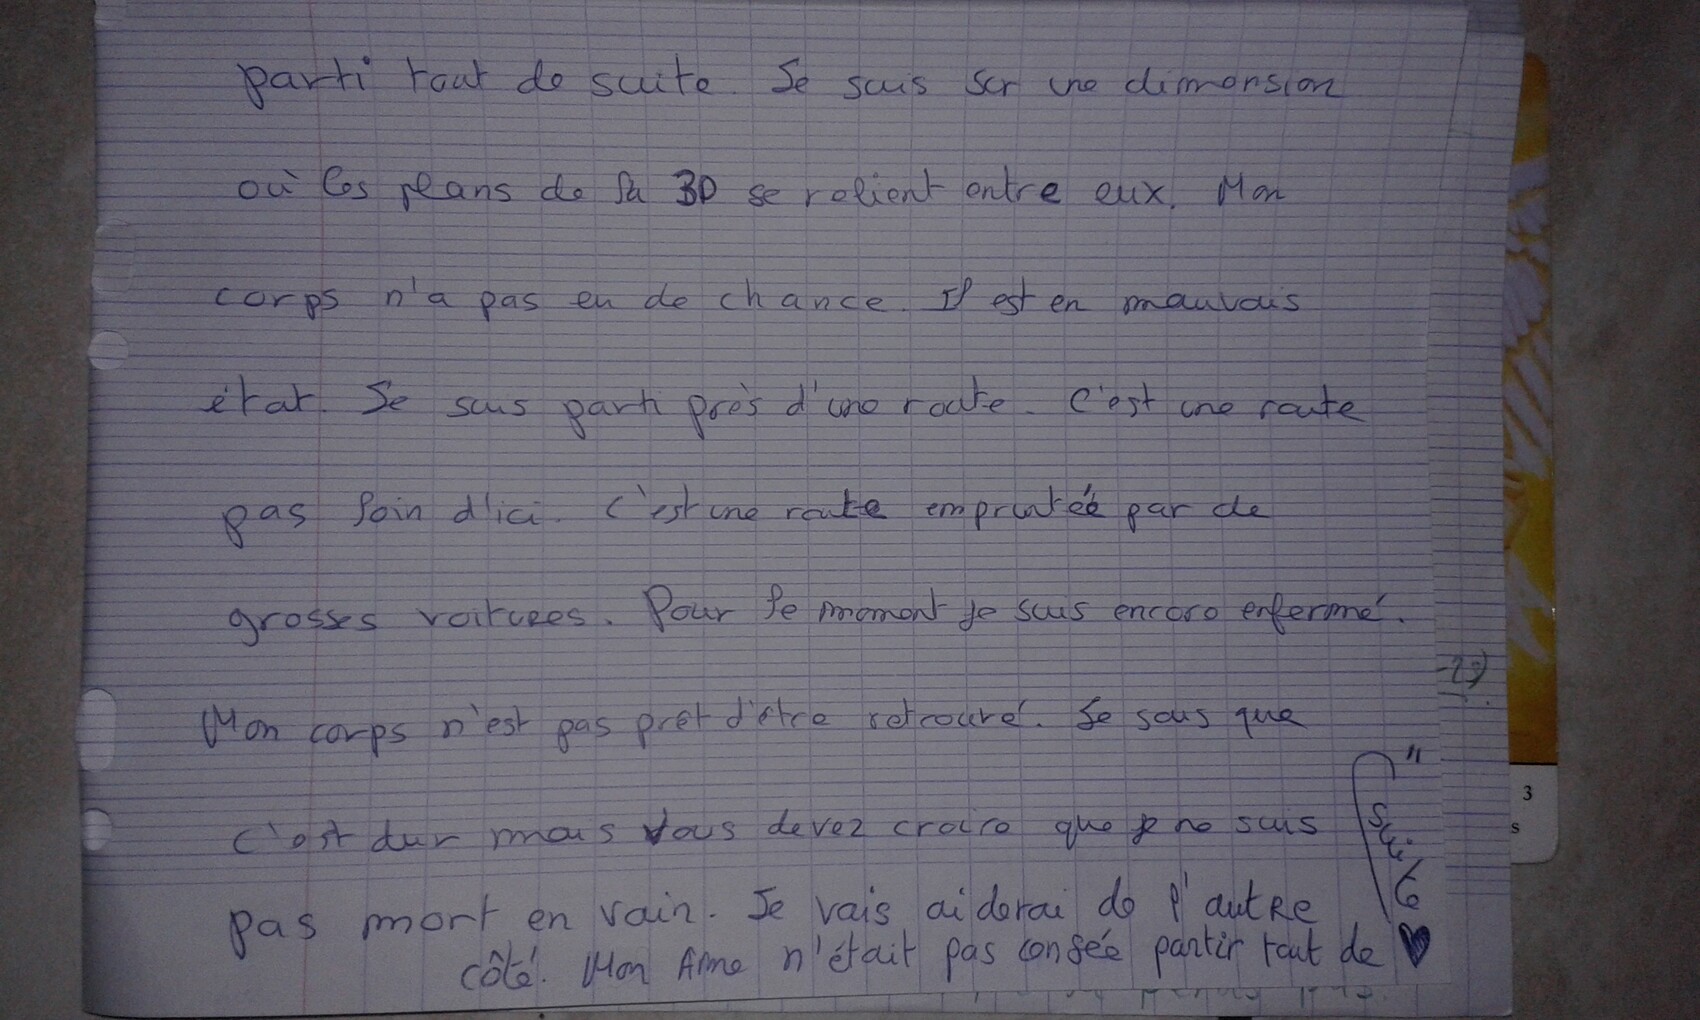 parti tout de suite. Je suis sur une dimension
où les plans de la 3D se relient entre eux. Mon
corps n'a pas eu de chance. Il est en mauvais
état. Je suis parti près d'une route. C'est une route
pas loin d'ici. C'est une route empruntée par de
grosses voitures. Pour le moment je suis encore enfermé.
Mon corps n'est pas prêt d'être retrouvé. Je sais que
c'est dur mais vous devez croire que je ne suis
pas mort en vain. Je vais aiderai de l'autre
côté. Mon Âme n'était pas censée partir tout de
"
suite
3
s